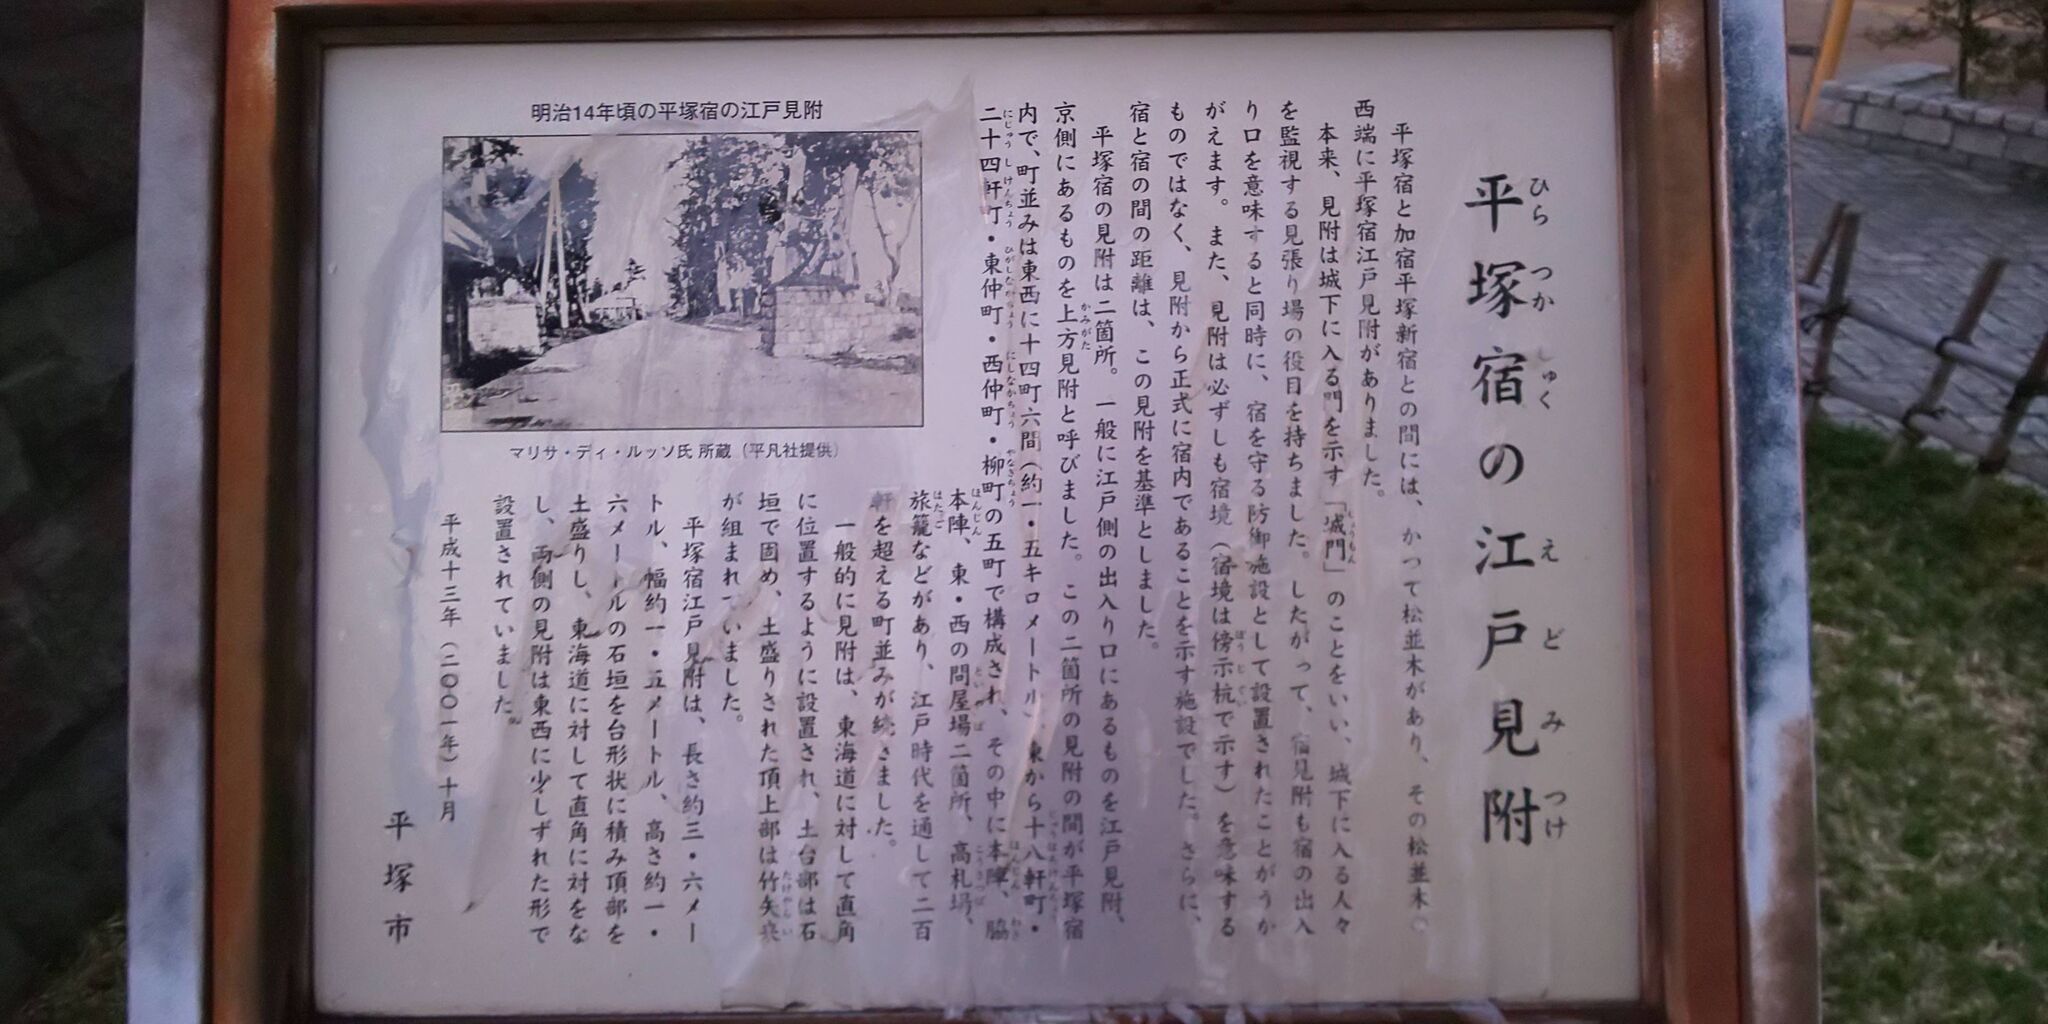 平塚宿の江戸見附
ひらつかしゅくのえどみつけ
平塚宿と加宿平塚新宿との間には、かつて松並木があり、その松並木の
西端に平塚宿江戸見附がありました。
本来、見附は城下に入る門を示す「城門」のことをいい、城下に入る人々
を監視する見張り場の役目を持ちました。したがって、宿見附も宿の出入
り口を意味すると同時に、宿を守る防御施設として設置されたことがうか
がえます。また、見附は必ずしも宿境（宿境は傍示杭で示す）を意味する
ものではなく、見附から正式に宿内であることを示す施設でした。さらに、
宿と宿の間の距離は、この見附を基準としました。
平塚宿の見附は二箇所。一般に江戸側の出入り口にあるものを江戸見附、
京側にあるものを上方見附と呼びました。この二箇所の見附の間が平塚宿
内で、町並みは東西に十四町六間（約一・五キロメートル）、東から十八軒町・
二十四軒町・東仲町・西仲町・柳町の五町で構成され、その中に本陣、脇
本陣、東・西の問屋場二箇所、高札場、
旅籠などがあり、江戸時代を通して二百
軒を超える町並みが続きました。
一般的に見附は、東海道に対して直角
に位置するように設置され、土台部は石
垣で固め、土盛りされた頂上部は竹矢来
が組まれていました。
平塚宿江戸見附は、長さ約三・六メー
トル、幅約一・五メートル、高さ約一・
六メートルの石垣を台形状に積み頂部を
土盛りし、東海道に対して直角に対をな
し、両側の見附は東西に少しずれた形で
設置されていました。
平成十三年（二〇〇一年）十月
平塚市
明治14年頃の平塚宿の江戸見附
マリサ・ディ・ルッソ氏 所蔵（平凡社提供）